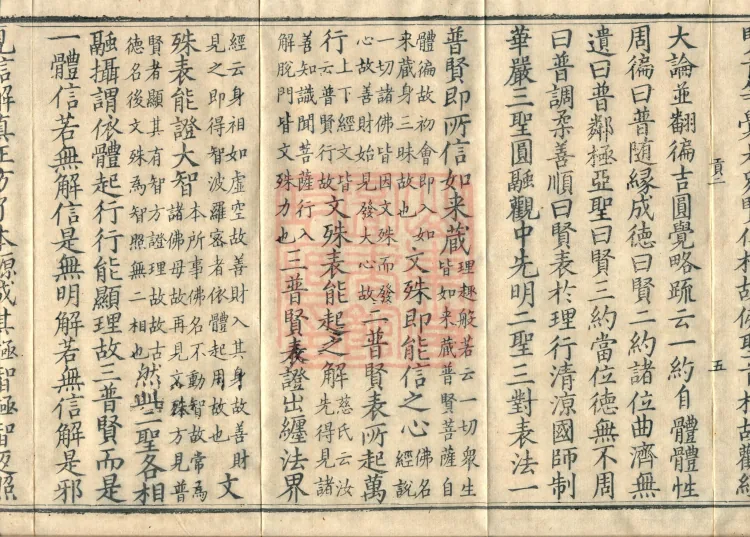 五
大論並翻徧吉圓覺略䟽云一約自體體性
周徧曰普隨緣成德曰賢二約諸位曲濟無
遺曰普鄰極亞聖曰賢三約當位德無不周
曰普調柔善順曰賢表於理行清涼國師制
華嚴三聖圓融觀中先明二聖三對表法一
普賢即所信如来藏理趣般若云一切衆生皆如来藏普賢菩薩自
體徧故初會即入如来藏身三昧故也文殊即能信之心佛名經說
一切諸佛皆因文殊而發心故善財始見發大心故二普賢表所起萬
行上下經文皆云普賢行故文殊表能起之解慈氏云汝先得見諸
善知識聞菩薩行入解脫門皆文殊力也三普賢表證出纏法界
經云身相如虛空故善財入其身故善財見之即得智波羅密者依體起用故也文
殊表能證大智本所事佛名不動智故常為諸佛母故再見文殊方見普
賢者顯其有智方證理故故古德名後文殊為智照無二相也然此二聖各相
融攝謂依體起行行能顯理故三普賢而是
一體信若無解信是無明解若無信解是邪
見信解真正方了本源成其極智極智返照